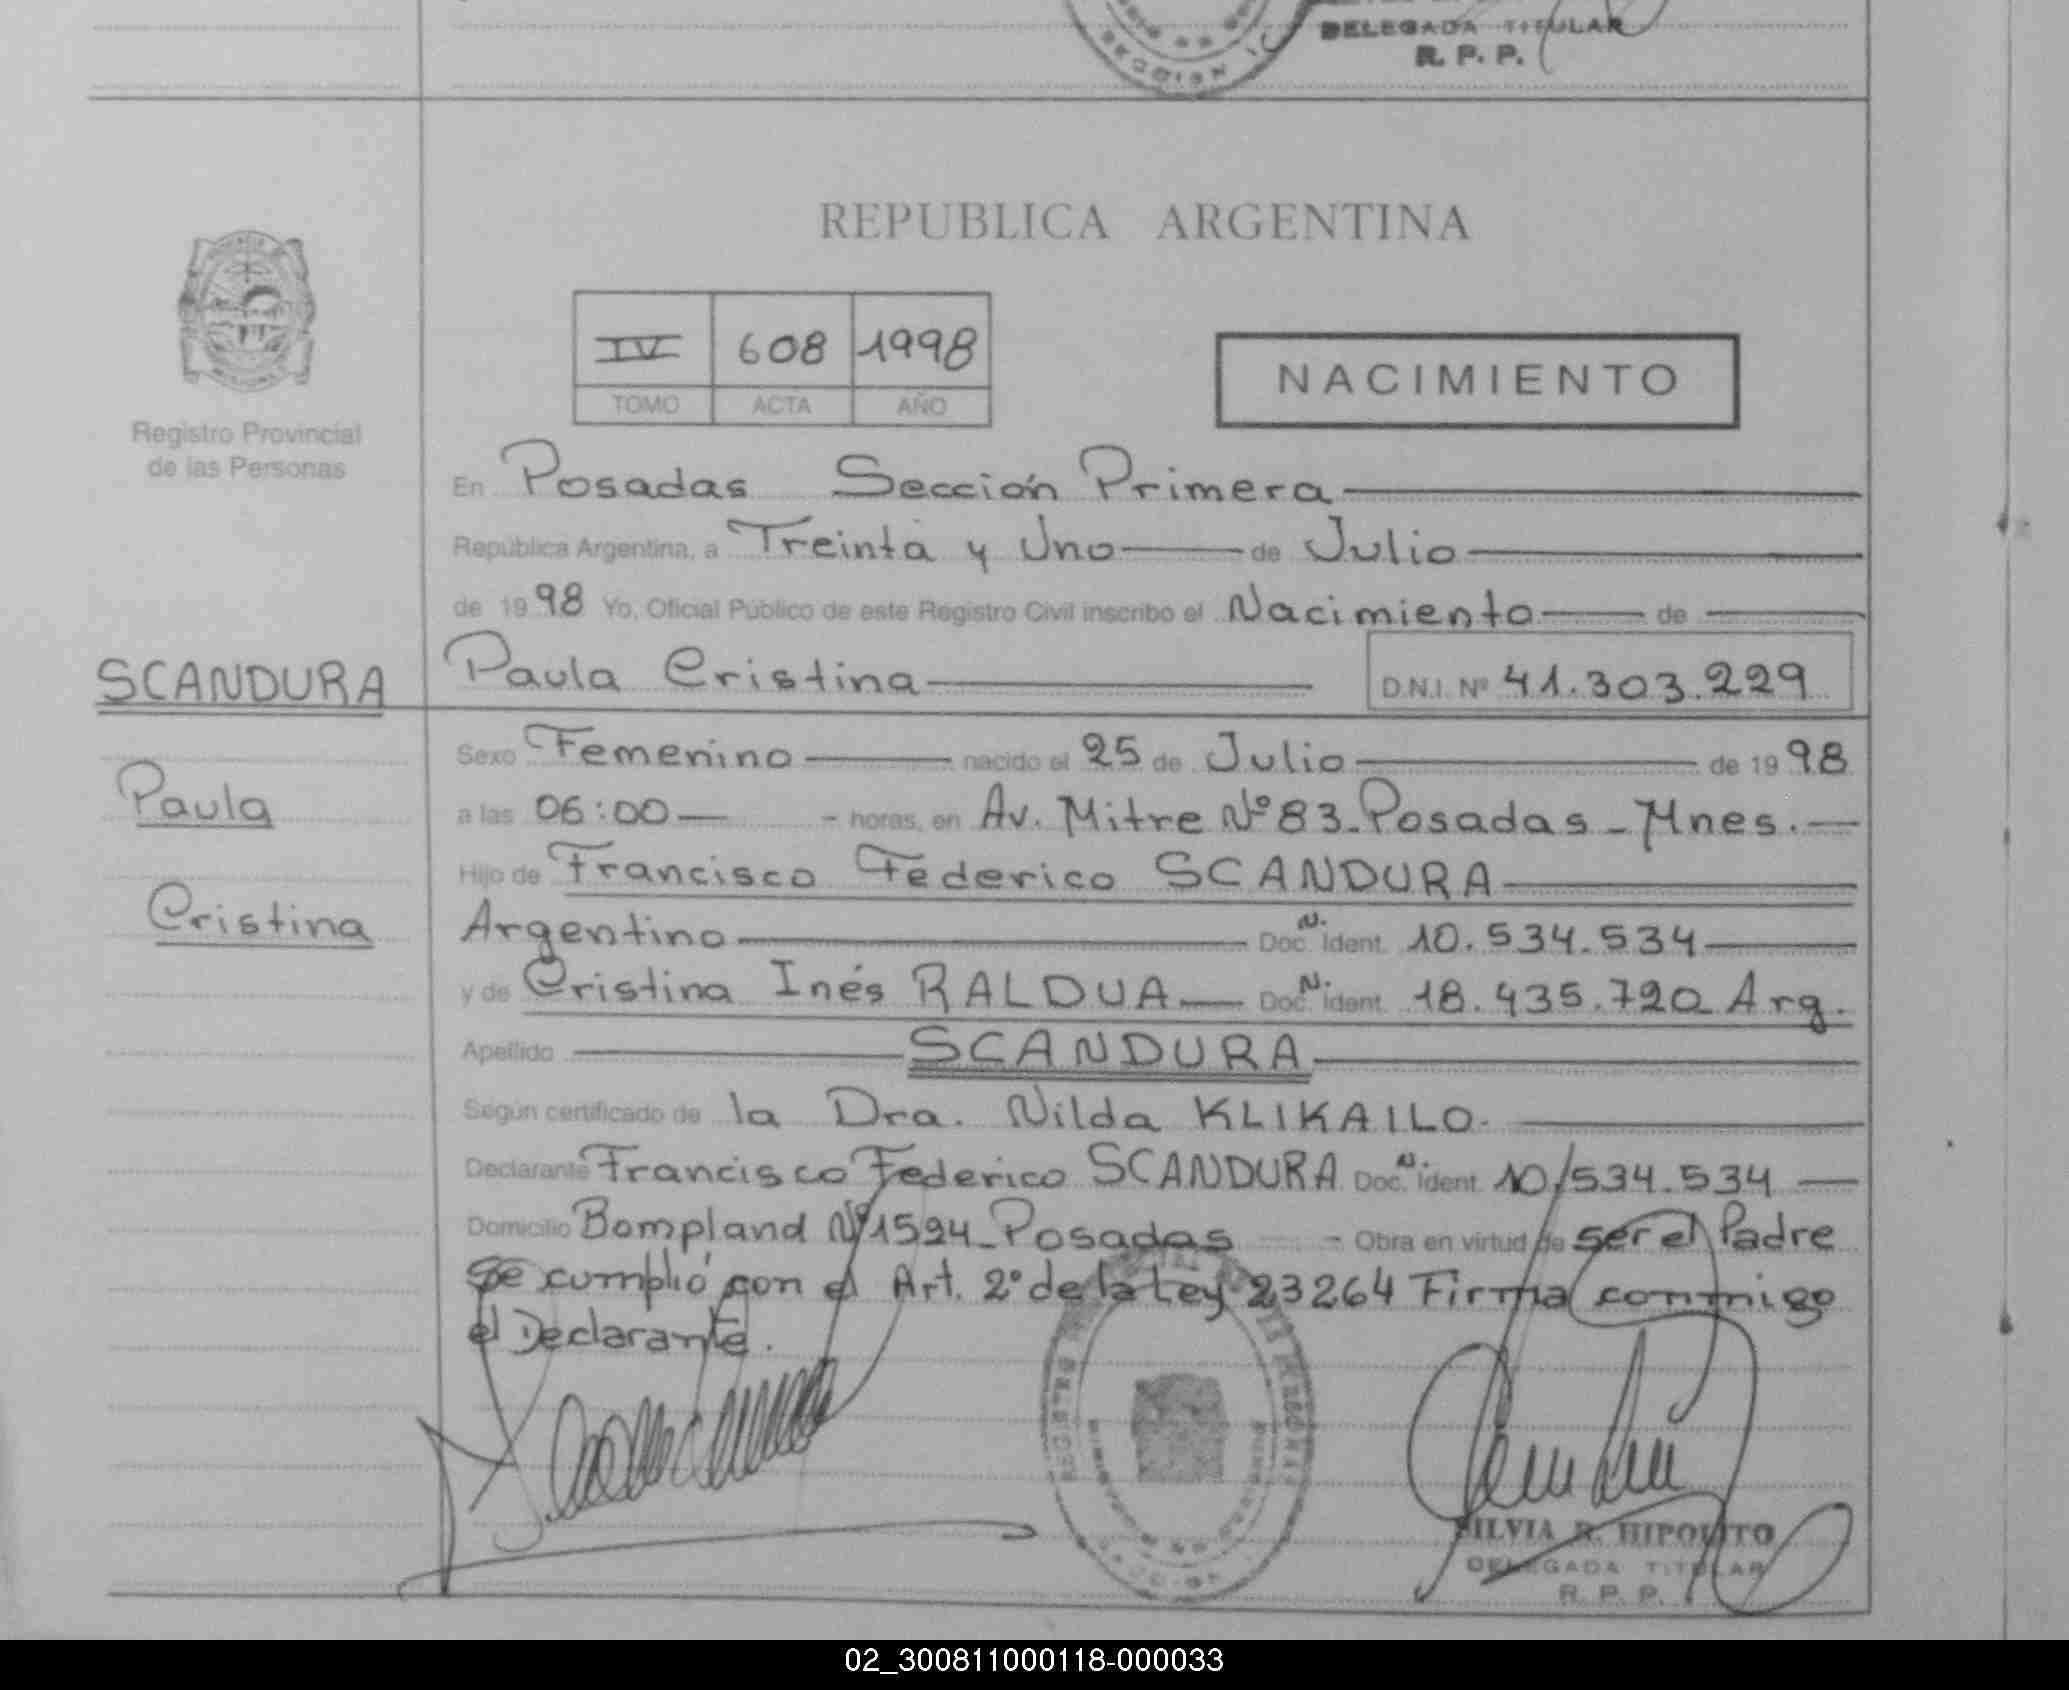 DELEGADA TITULAR
R. P. P.
SECCION 1
REPUBLICA ARGENTINA
IV 608 1998
TOMO ACTA AÑO
NACIMIENTO
Registro Provincial
de las Personas
En Posadas Sección Primera
República Argentina, a Treinta y Uno de Julio
de 1998 Yo, Oficial Público de este Registro Civil inscribo el Nacimiento de
SCANDURA Paula Cristina D.N.I. Nº 41.303.229
Sexo Femenino nacido el 25 de Julio de 1998
Paula
a las 06:00 - horas, en Av. Mitre Nº 83-Posadas-Mnes.
Hijo de Francisco Federico SCANDURA
Cristina
Argentino Doc. N. Ident. 10.534.534
y de Cristina Inés RALDUA Doc. N. Ident. 18.435.720 Arg.
Apellido SCANDURA
Según certificado de la Dra. Nilda KLIKAILO.
Declarante Francisco Federico SCANDURA Doc. N. Ident. 10.534.534
Domicilio Bompland Nº 1594-Posadas - Obra en virtud de ser el Padre
Se cumplió con el Art. 2º de la Ley 23264 Firma conmigo
el Declarante.
SILVIA R. HIPOLITO
DELEGADA TITULAR
R. P. P.
02_300811000118-000033